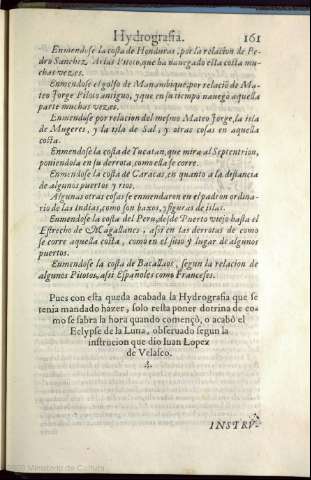 Hydrografia. 161
Enmendose la costa de Honduras, por la relacion de Pe-
dro Sanchez. Arias Piloto, que ha nauegado esta costa mu-
chas vezes.
Enmendose el golfo de Manambique, por relaciō de Ma-
teo Jorge Piloto antiguo, y que en su tiempo nauegò aquella
parte muchas vezes.
Enmendose por relacion del mesmo Mateo Jorge, la isla
de Mugeres, y la isla de Sal, y otras cosas en aquella
costa.
Enmendose la costa de Yucatan, que mira al Septentrion,
poniendola en su derrota, como ella se corre.
Enmendose la costa de Caracas, en quanto a la distancia
de algunos puertos y rios.
Algunas otras cosas se enmendaren en el padron ordina-
rio de las Indias, como son baxos, y figuras de islas.
Enmendose la costa del Peru, desde Puerto viejo hasta el
Estrecho de Magallanes, assi en las derrotas de como
se corre aquella costa, como en el sitio y lugar de algunos
puertos.
Enmendose la costa de Bacallaos, segun la relacion de
algunos Pilotos, assi Españoles como Franceses.
Pues con esta queda acabada la Hydrografia que se
tenia mandado hazer, solo resta poner dotrina de co-
mo se sabra la hora quando començò, o acabò el
Eclypse de la Luna, obseruado segun la
instrucion que dio Iuan Lopez
de Velasco.
INSTRV-
Ministerio de Cultura